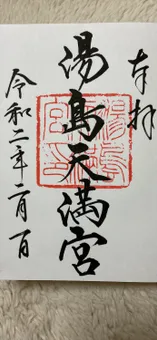 奉拝
湯島天満宮
令和二年二月一日